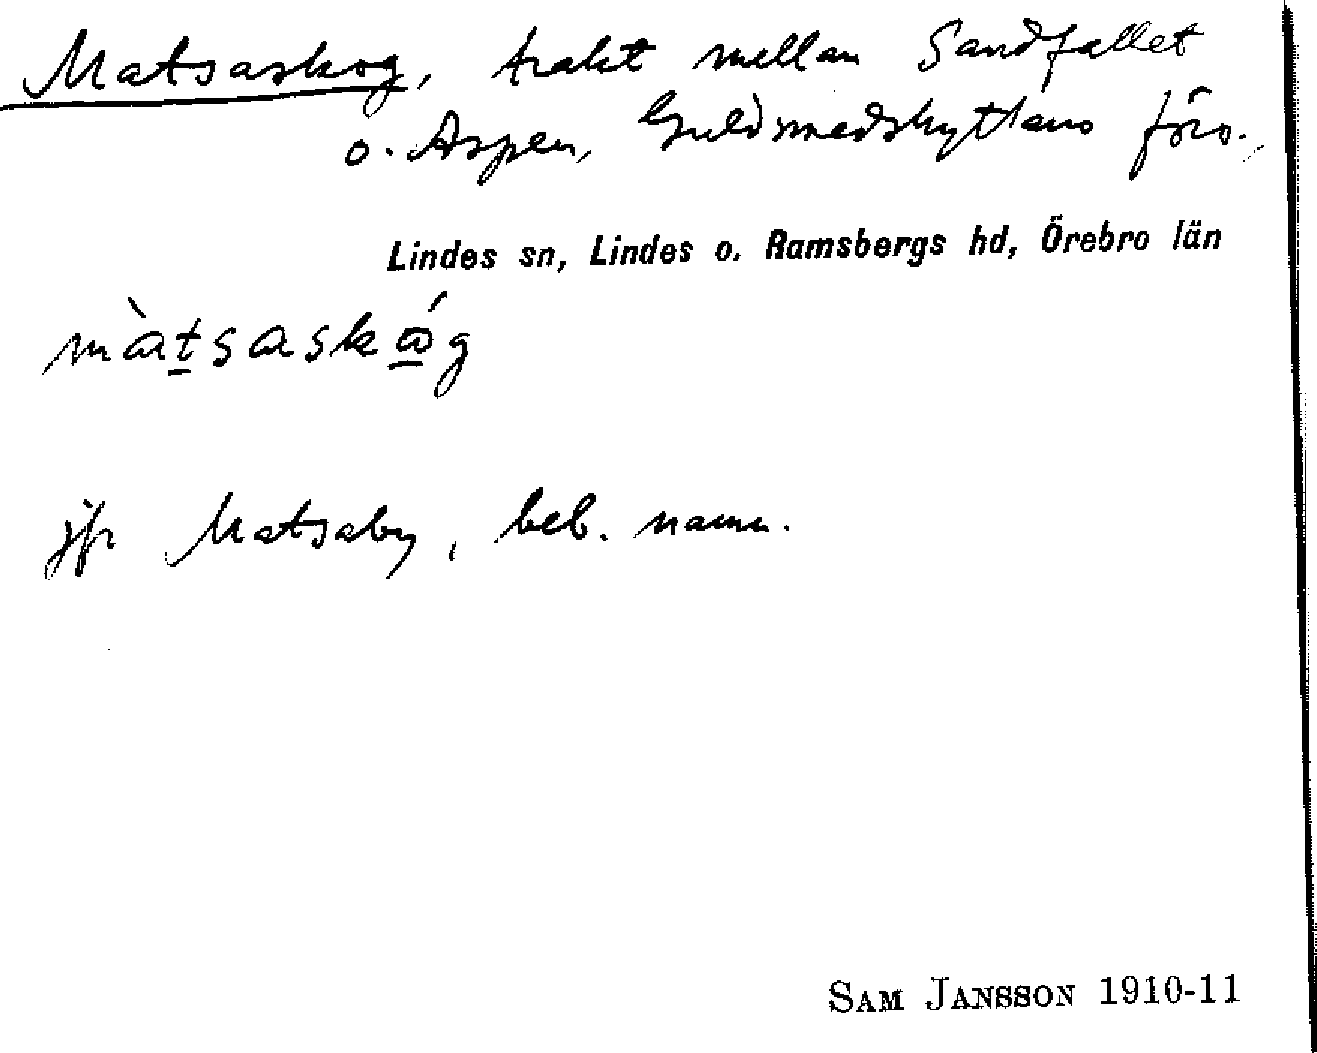 Matsaskog, trakt mellan Sandfallet
o. Aspen, Guldsmedshyttans förs.,
Lindes sn, Lindes o. Ramsbergs hd, Örebro län
màt̲saskώ̲g
jfr Matsaby, beb. namn.
SAM JANSSON 1910-11